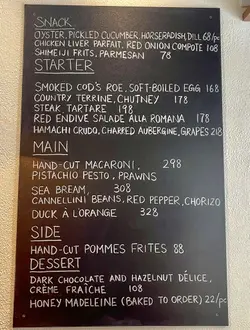 SNACK
OYSTER, PICKLED CUCUMBER, HORSERADISH, DILL 68/pc
CHICKEN LIVER PARFAIT, RED ONION COMPOTE 108
SHIMEIJI FRITS, PARMESAN 78
STARTER
SMOKED COD'S ROE, SOFT-BOILED EGG 168
COUNTRY TERRINE, CHUTNEY 178
STEAK TARTARE 198
RED ENDIVE SALADE ALLA ROMANA 178
HAMACHI CRUDO, CHARRED AUBERGINE, GRAPES 218
MAIN
HAND-CUT MACARONI, 298
PISTACHIO PESTO, PRAWNS
SEA BREAM, 308
CANNELLINI BEANS, RED PEPPER, CHORIZO
DUCK À L'ORANGE 328
SIDE
HAND-CUT POMMES FRITES 88
DESSERT
DARK CHOCOLATE AND HAZELNUT DÉLICE,
CRÈME FRAÎCHE 108
HONEY MADELEINE (BAKED TO ORDER) 22/pc